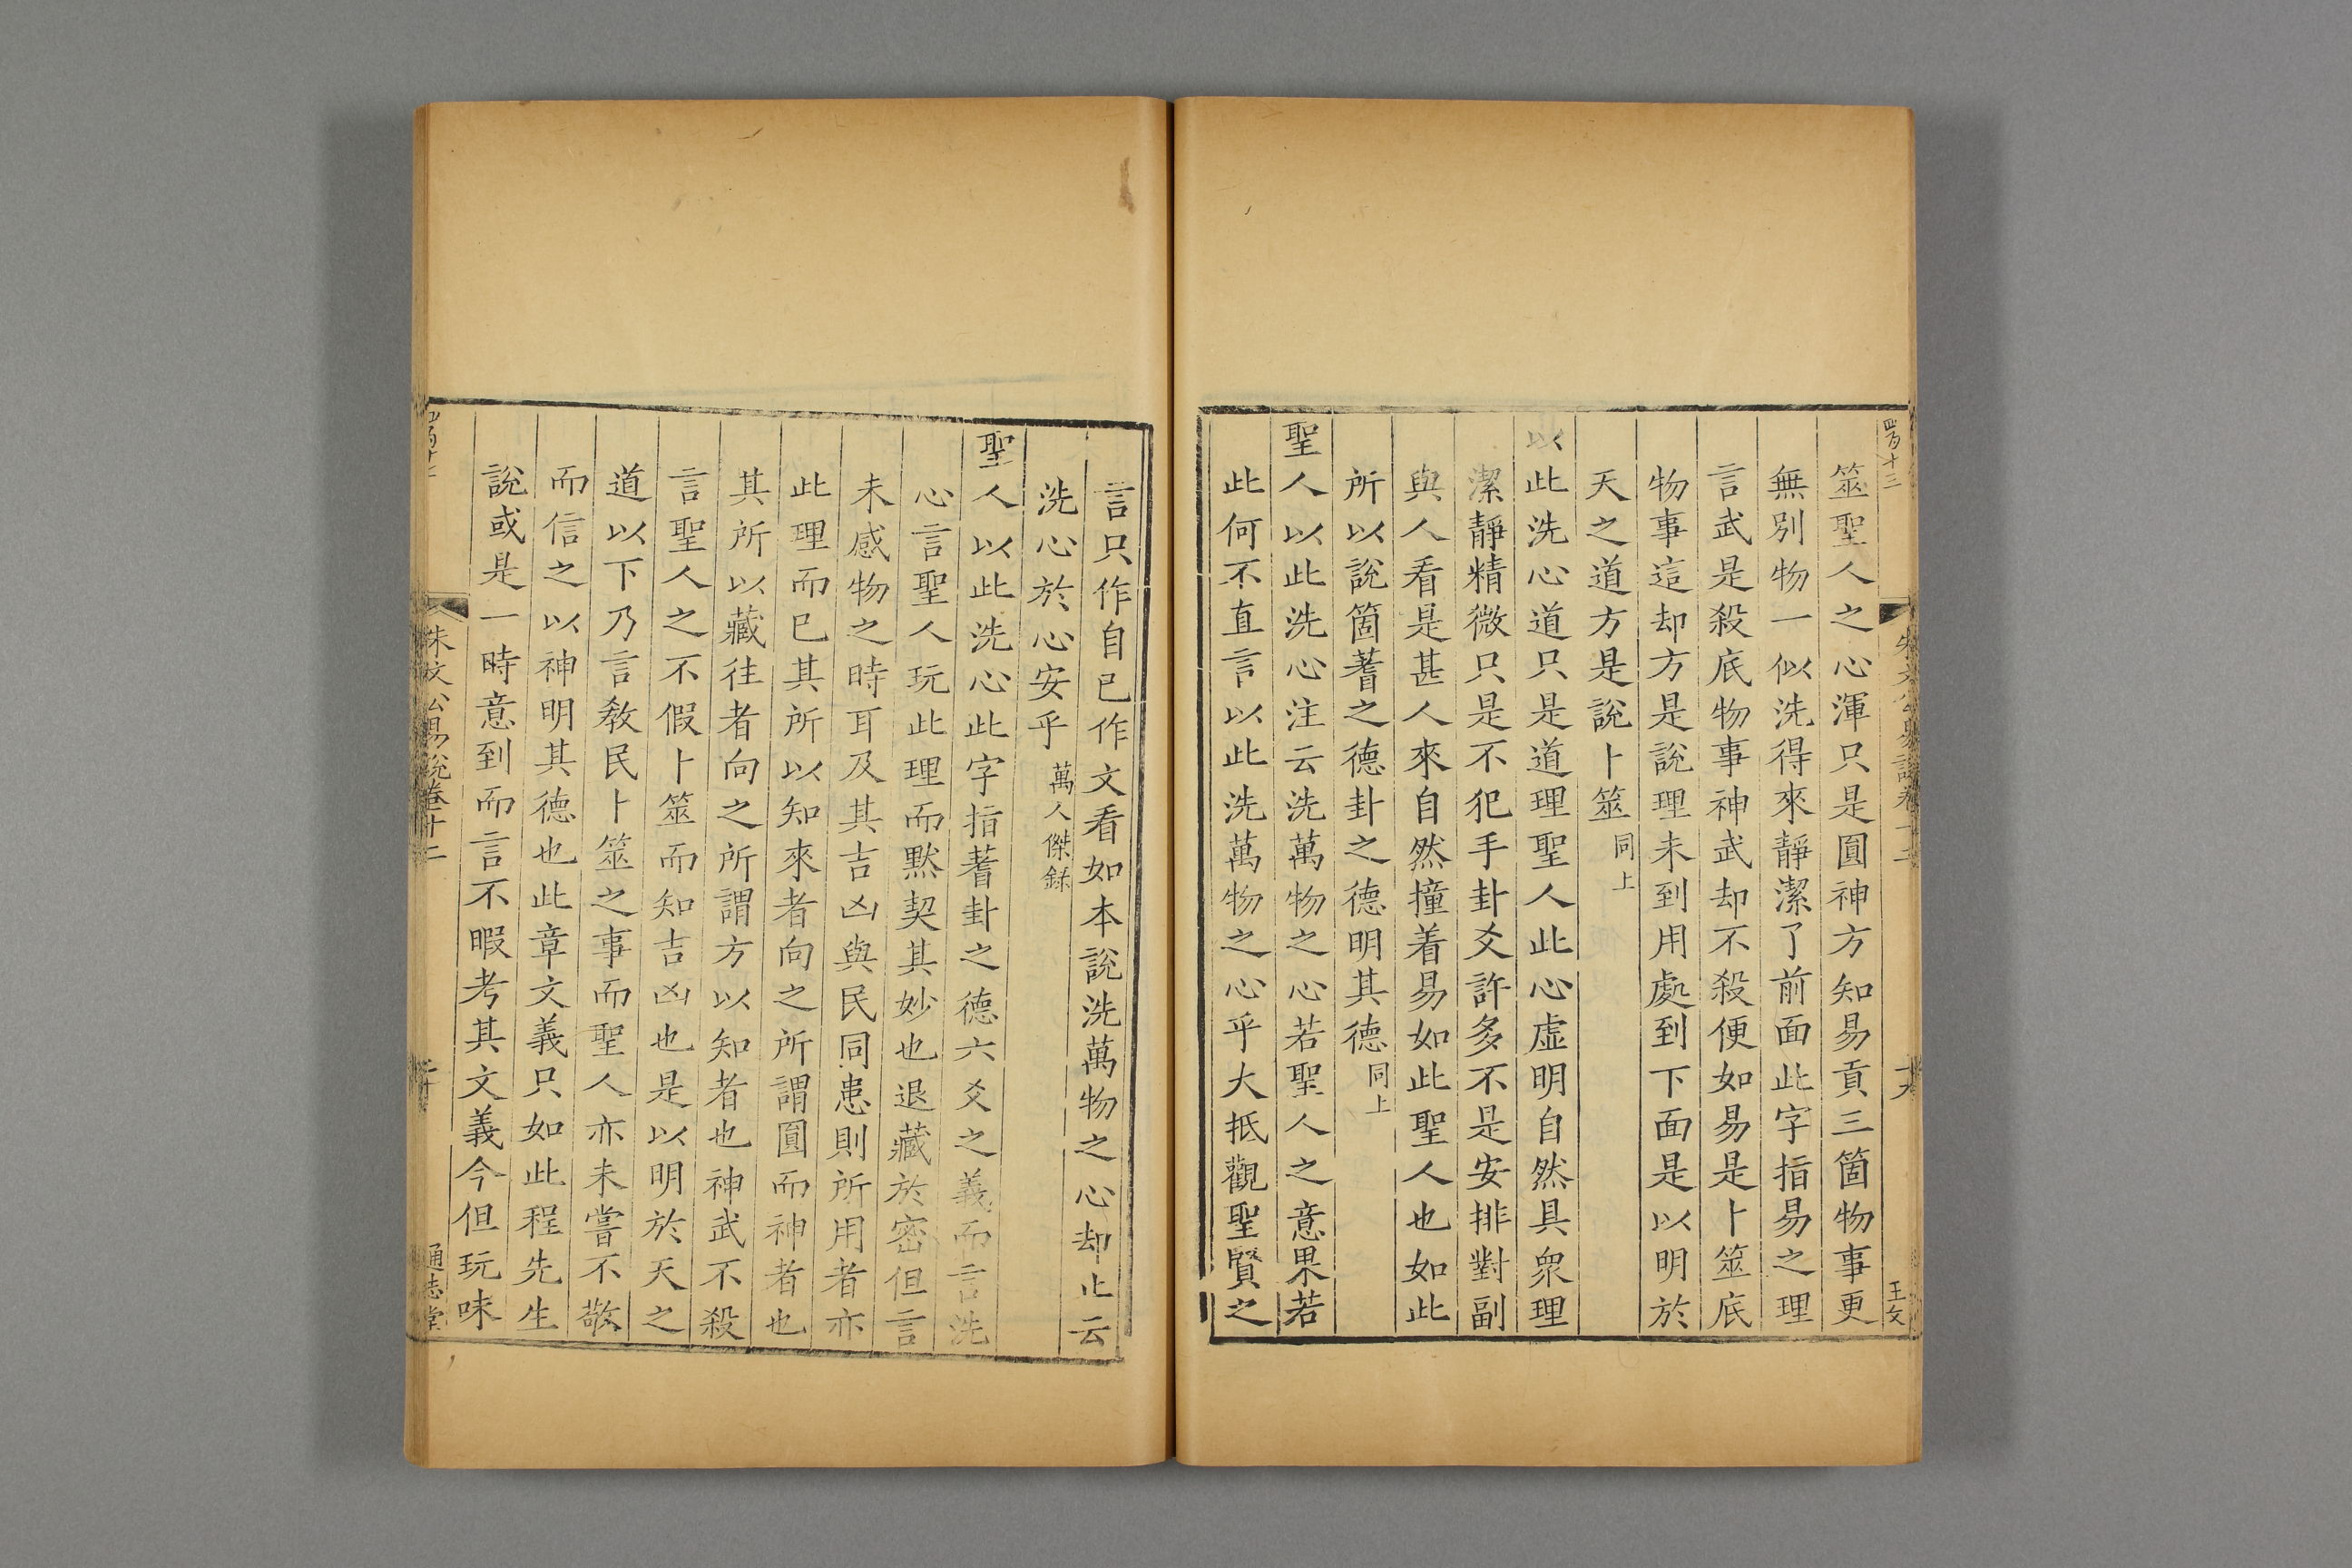 筮聖人之心渾只是圓神方知易貢三箇物事更
無別物一似洗得來靜潔了前面此字指易之理
言武是殺底物事神武却不殺便如易是卜筮底
物事這却方是說理未到用處到下面是以明於
天之道方是說卜筮同上
以此洗心道只是道理聖人此心虛明自然具衆理
潔靜精微只是不犯手卦爻許多不是安排對副
與人看是甚人來自然撞着易如此聖人也如此
所以說箇蓍之德卦之德明其德同上
聖人以此洗心注云洗萬物之心若聖人之意果若
此何不直言以此洗萬物之心乎大抵觀聖賢之
言只作自己作文看如本說洗萬物之心却止云
洗心於心安乎萬人傑錄
聖人以此洗心此字指蓍卦之德六爻之義而言洗
心言聖人玩此理而默契其妙也退藏於密但言
未感物之時耳及其吉凶與民同患則所用者亦
此理而已其所以知來者向之所謂圓而神者也
其所以藏往者向之所謂方以知者也神武不殺
言聖人之不假卜筮而知吉凶也是以明於天之
道以下乃言敎民卜筮之事而聖人亦未嘗不敬
而信之以神明其德也此章文義只如此程先生
說或是一時意到而言不暇考其文義今但玩味
朱文公易說卷十二
通志堂